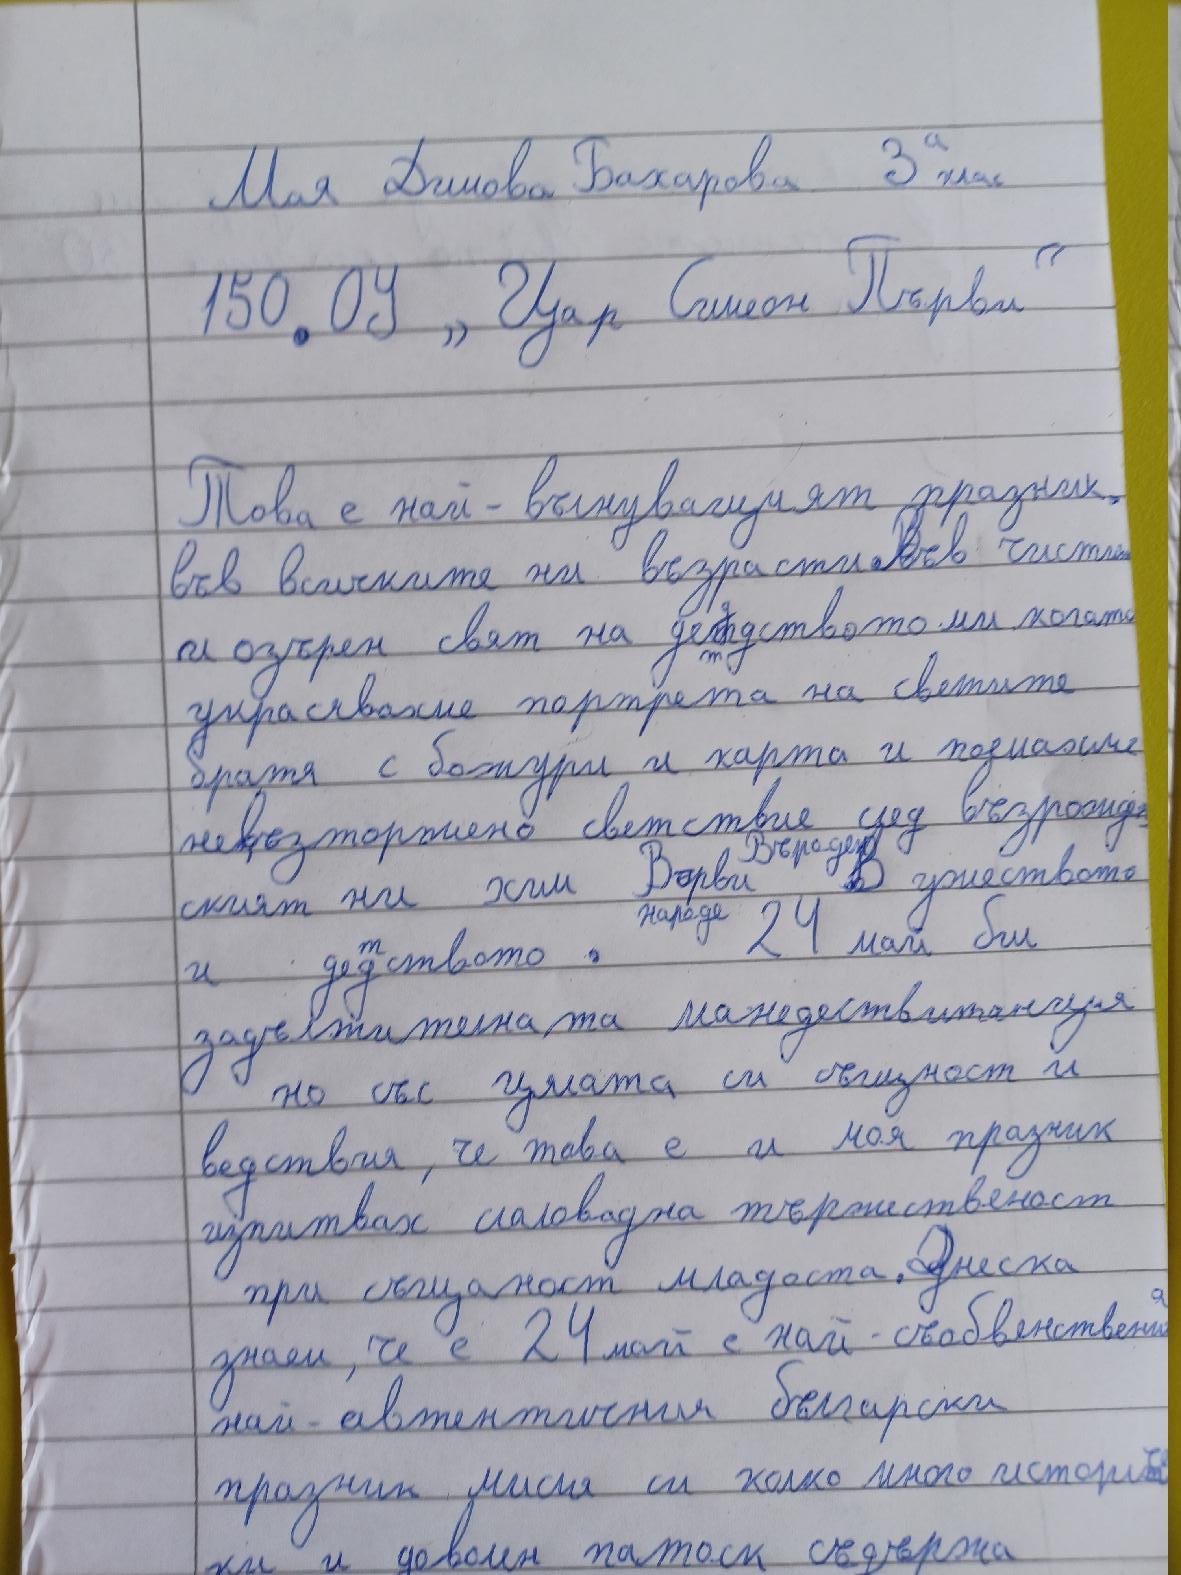 Мая Димова Бахарова 3а клас
150.ОУ „Цар Симеон Първи“
Това е най-вънуващият празник.
във всичките ни възрасти. Във чистия
и озърен свят на детството ми когато
украсявахме портрета на светите
братя с божури и карта и поемахме
невъзторжено светствие след възрожден
ският ни хим Върви Възраден В ужеството
народе
и детството. 24 май би
задължителната манедествитанция
но със цялата си същност и
ведствия, че това е и моя празник
изпитвах словадна тържественост
при същаност младоста. Днеска
знаем, че е 24 май е най-съобвенствения
най-автентичния български
празник мисля си колко много историчес
ки и доволен патоск съдържа